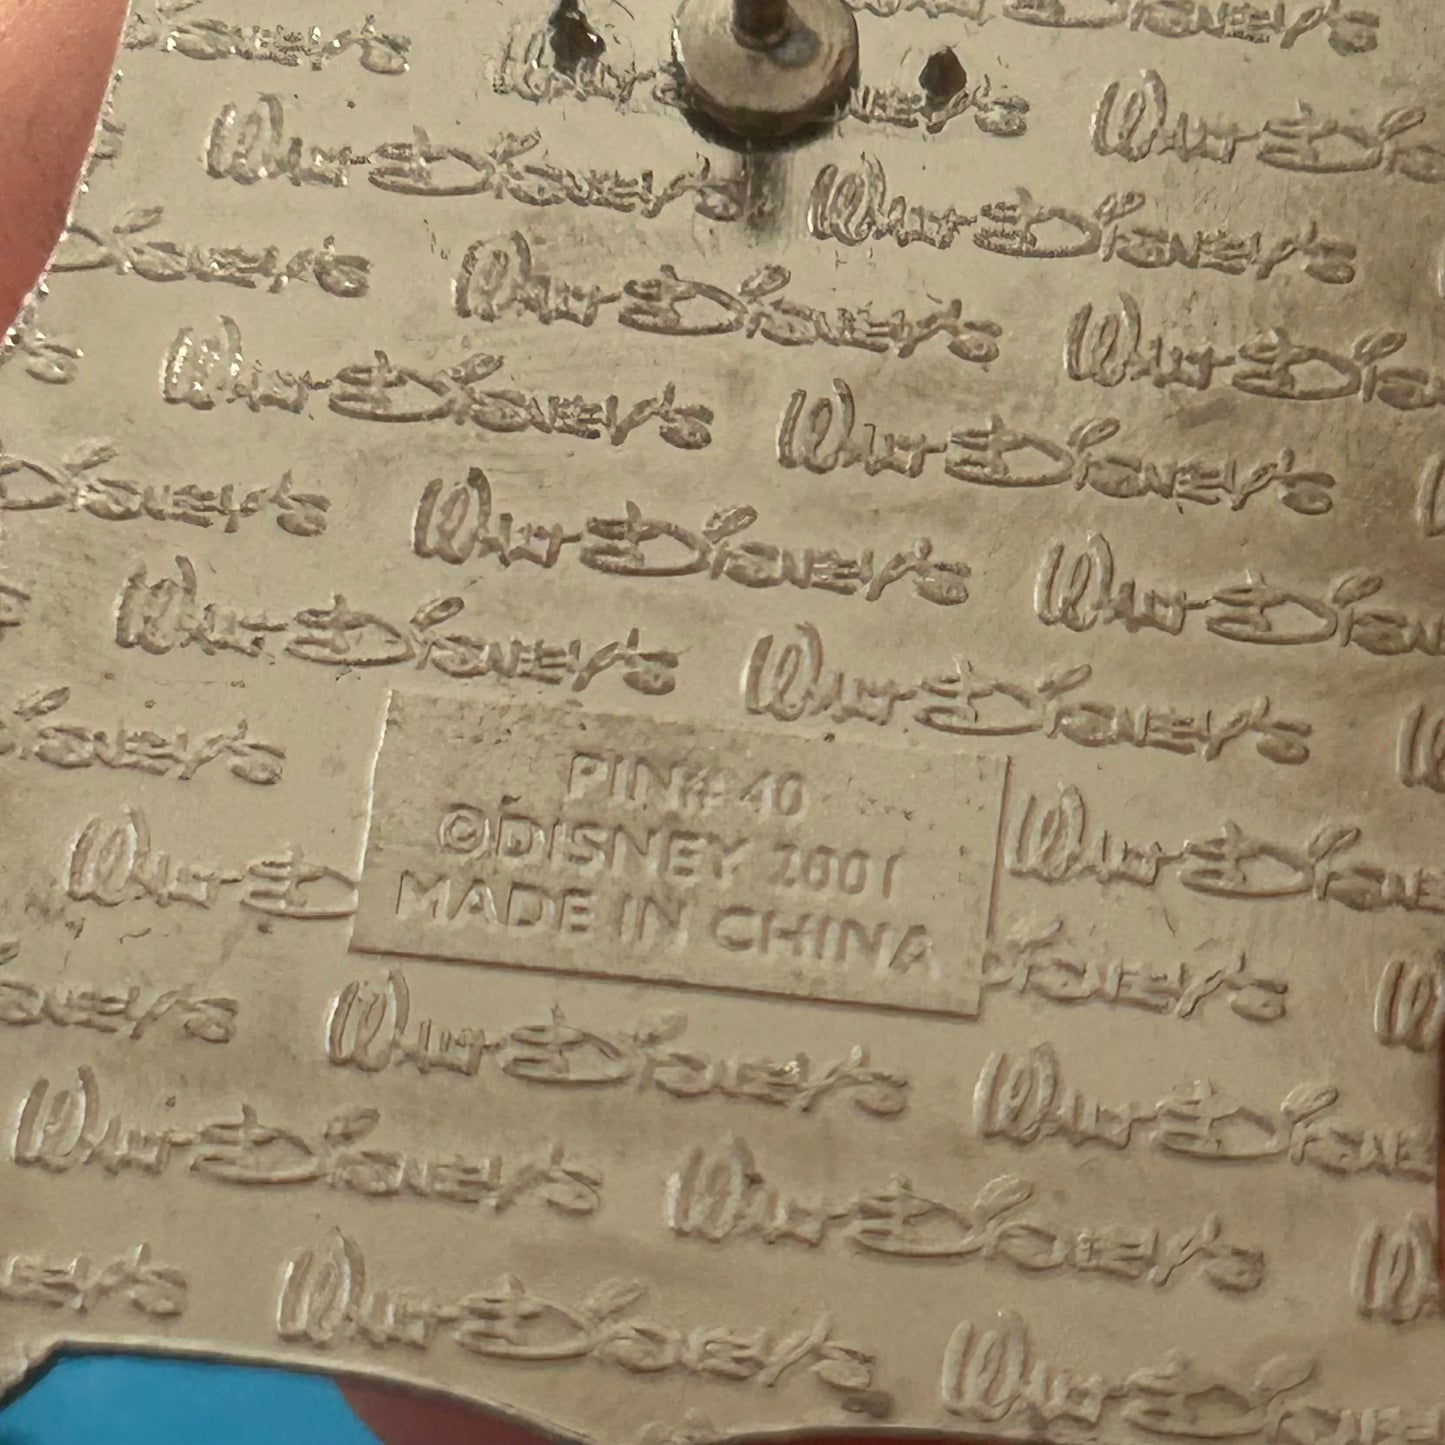 Disney's
Disney's Walt ney's Walt Dis
Walt Disney's Walt Disney's
Disney's Walt Disney's Walt Dis
's Walt Disney's Walt Disney's
Disney's Walt Disney's Walt Disney
Walt Disney's Walt Disney's
Disney's
PIN# 40
©DISNEY 2001
MADE IN CHINA
Walt Disne
Walt D isney's
isney's Walt Disney's Walt Disne
Walt Disney's Walt Disney's
ney's Walt Disney's Walt Disney